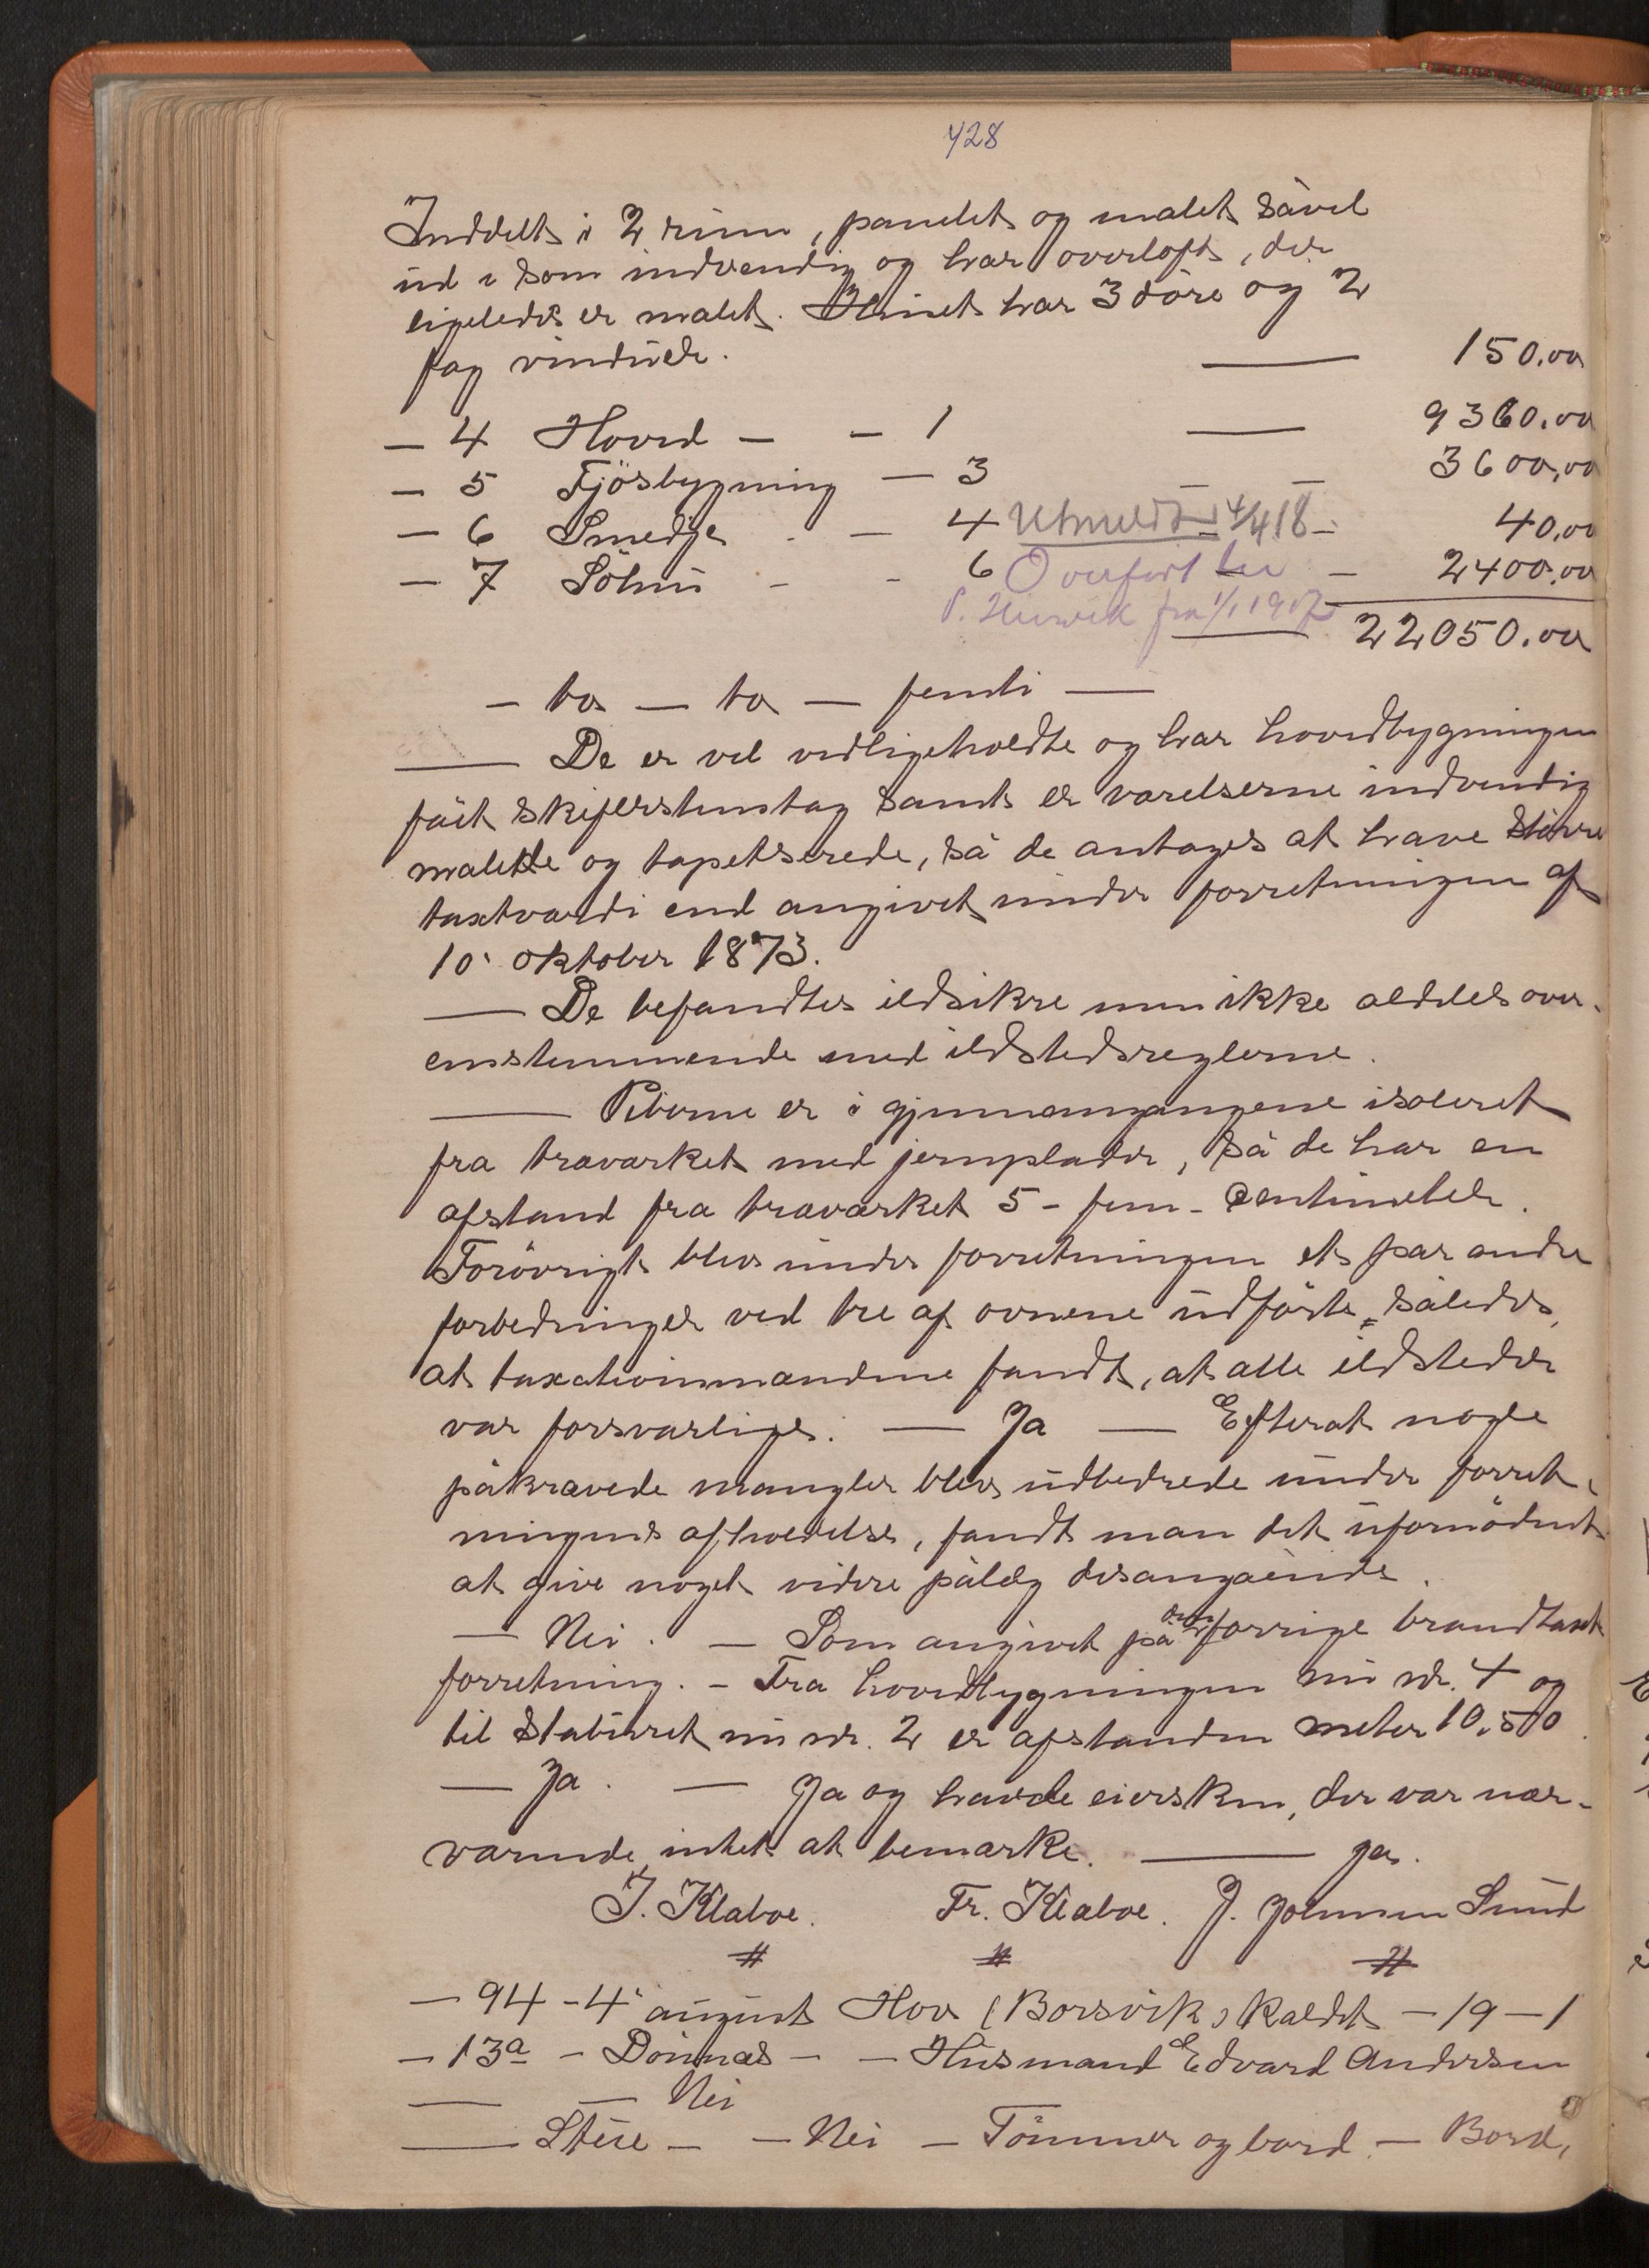 428
Inddelt i 2 rum, panelet og malet såvel
ud- som indvendig og har overloft, der
ligeledes er malet. Huset har 3 döre og 2
fag vinduer. — 150.00
— 4 Hoved — — 1 — 9360.00
— 5 Fjösbygning — 3 — — 3600,00
— 6 Smedje - — 4 Utmeldt 4/4 18 — 40,00
— 7 Söhus - - 6 Overfört — 2400.00
P. fra 1/1 1917 — 22050.00
— to — to — femti —
— De er vel vedligeholdte og har hovedbygningen
fået skifferstenstag samt er værelserne indvendig
malede og tapetserede, så de antages at have större
taxtværdi end angivet under forretningen af
10. oktober 1873.
— De befandtes ildsikre men ikke aldeles over-
ensstemmende med ildstedsreglerne.
— Piberne er i gjennemgangene isoleret
fra træværket med jernplader, så de har en
afstand fra træværket 5 - fem - Centimeter.
Forövrigt blev under forretningen et par andre
forbedringer ved tre af ovnene udförte, således,
at taxationsmændene fandt, at alle ildsteder
var forsvarlige. — Ja — Efterat nogle
påkrævede mangler blev udbedrede under forret-
ningens afholdelse, fandt man det ufornödent
at give noget videre pålæg desangående.
— Nei. — Som angivet på den forrige brandtaxt
forretning. - Fra hovedbygningen nu nr. 4 og
til stabburet nu nr. 2 er afstanden meter 10.50.
— Ja. — Ja og havde eiersken, der var nær-
værende intet at bemærke. — Ja.
J. Klæboe. Fr. Klæboe. J. Johnsen Sund
# # #
— 94 - 4. august Hov (Borsvik) kaldet — 19 — 1
— 13a - Dönnes — — Husmand Edvard Andersen
— — Nei
— Stue — — Nei — Tömmer og bord — Bord,